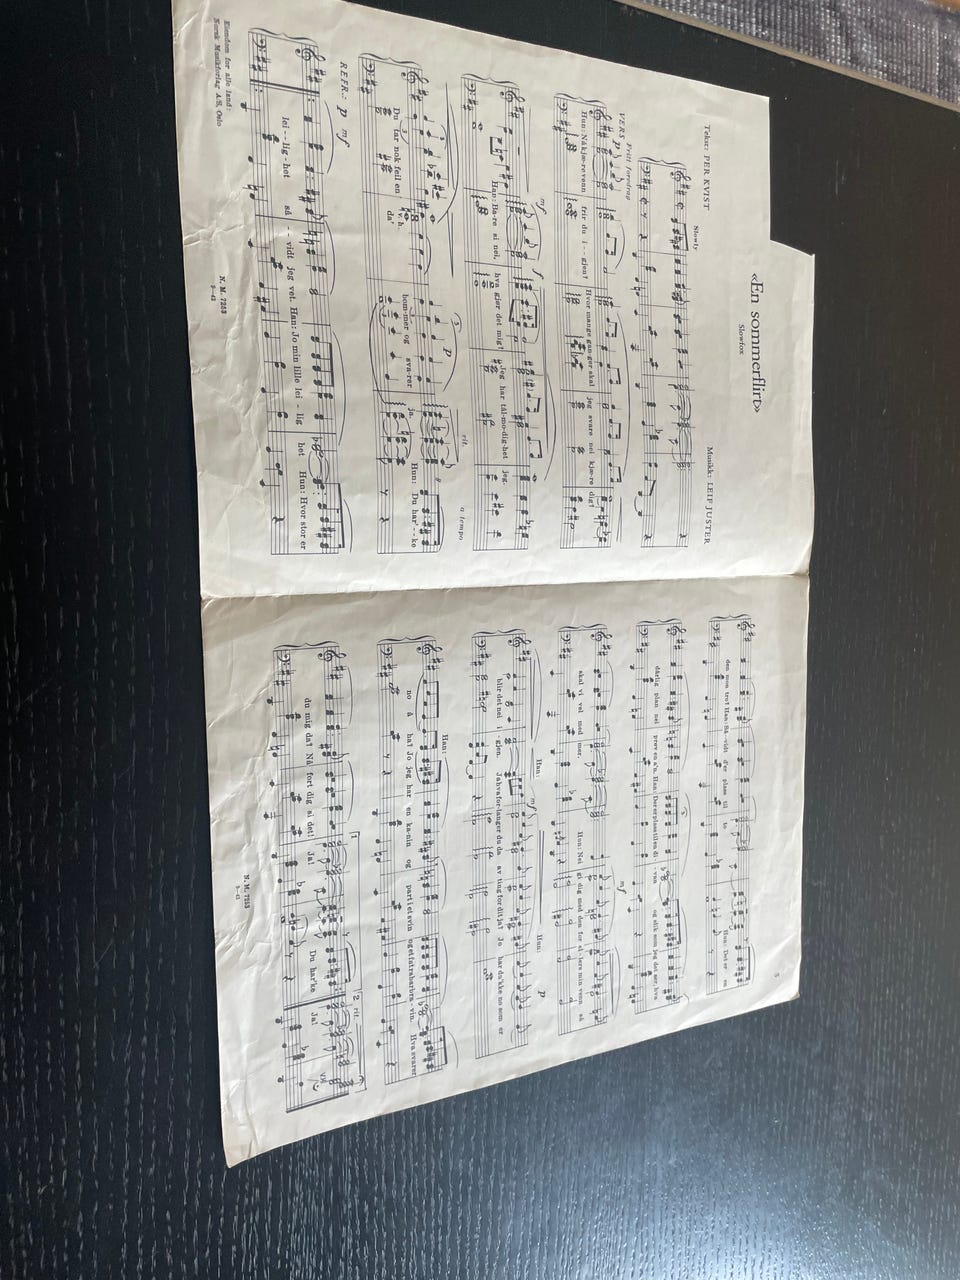 «En sommerflirt»
Slowfox
Tekst: PER KVIST
Musikk: LEIF JUSTER
Slowly
VERS
Fritt foredrag
p
Hun: Nå kjære venn frir du i - - gjen? Hvor mange ganger skal jeg svare nei kjæ-re dig?
mf f
Han: Ba-re si nei, hva gjør det mig? Jeg har tål-mo-dig-het jeg.
p rit. a tempo
Du tar nok feil en v. h. da' kom-mer og sva-rer ja. Hun: Du har' - - ke
REFR.: p mf
lei - - lig - het så - - vidt jeg vet. Han: Jo min lille lei - lig het Hun: Hvor stor er
Eiendom for alle land:
Norsk Musikforlag A/S, Oslo
N. M. 7253
9—41
5
den mon tro? Han: Så-vidt d'er plass til to Hun: Det er en
dårlig plan nei prøv en a'n. Han: Der er plass til en di - van og slik som jeg det ser, hva
mf
skal vi vel med mer. Hun: Nei gi dig med den for el-ders min venn så
Han: mf Hun: p
blir det nei i - gjen. Ja hva for-langer du da av ting for dit ja? Jo har du'kke no som er
Han:
no å ha? Jo jeg har en ka-nin og parti etsvin Hva svarer
1 2 rit.
du mig da? Nå fort dig si det! Ja! Du har'ke Ja!
N. M. 7253
9—41